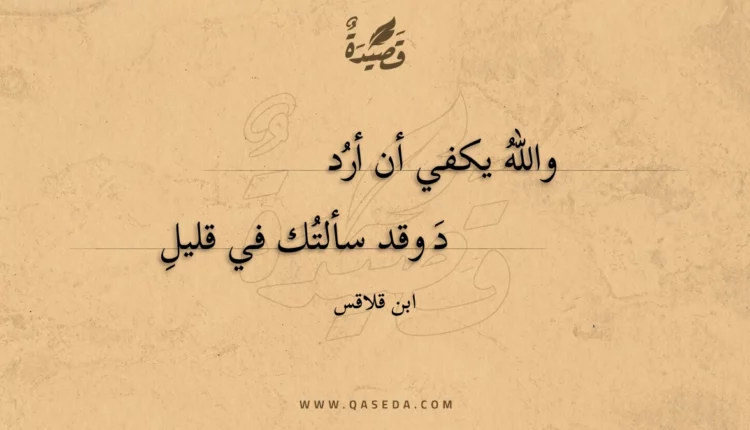 قَصِيْدَةٌ
واللهُ يكفي أن أرُد
دَ وقد سألتُك في قليلِ
ابن قلاقس
WWW.QASEDA.COM